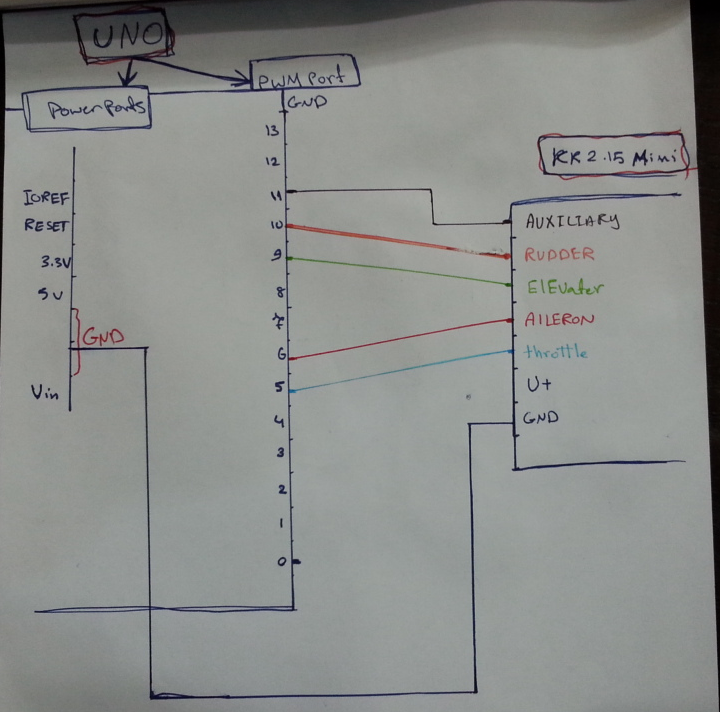 UNO
PWM Port
Power Ports
GND
13
12
11
10
9
8
7
6
5
4
3
2
1
0
IOREF
RESET
3.3V
5v
GND
Vin
KK 2.15 Mini
AUXILIARY
RUDDER
ElEvater
AILERON
throttle
U+
GND